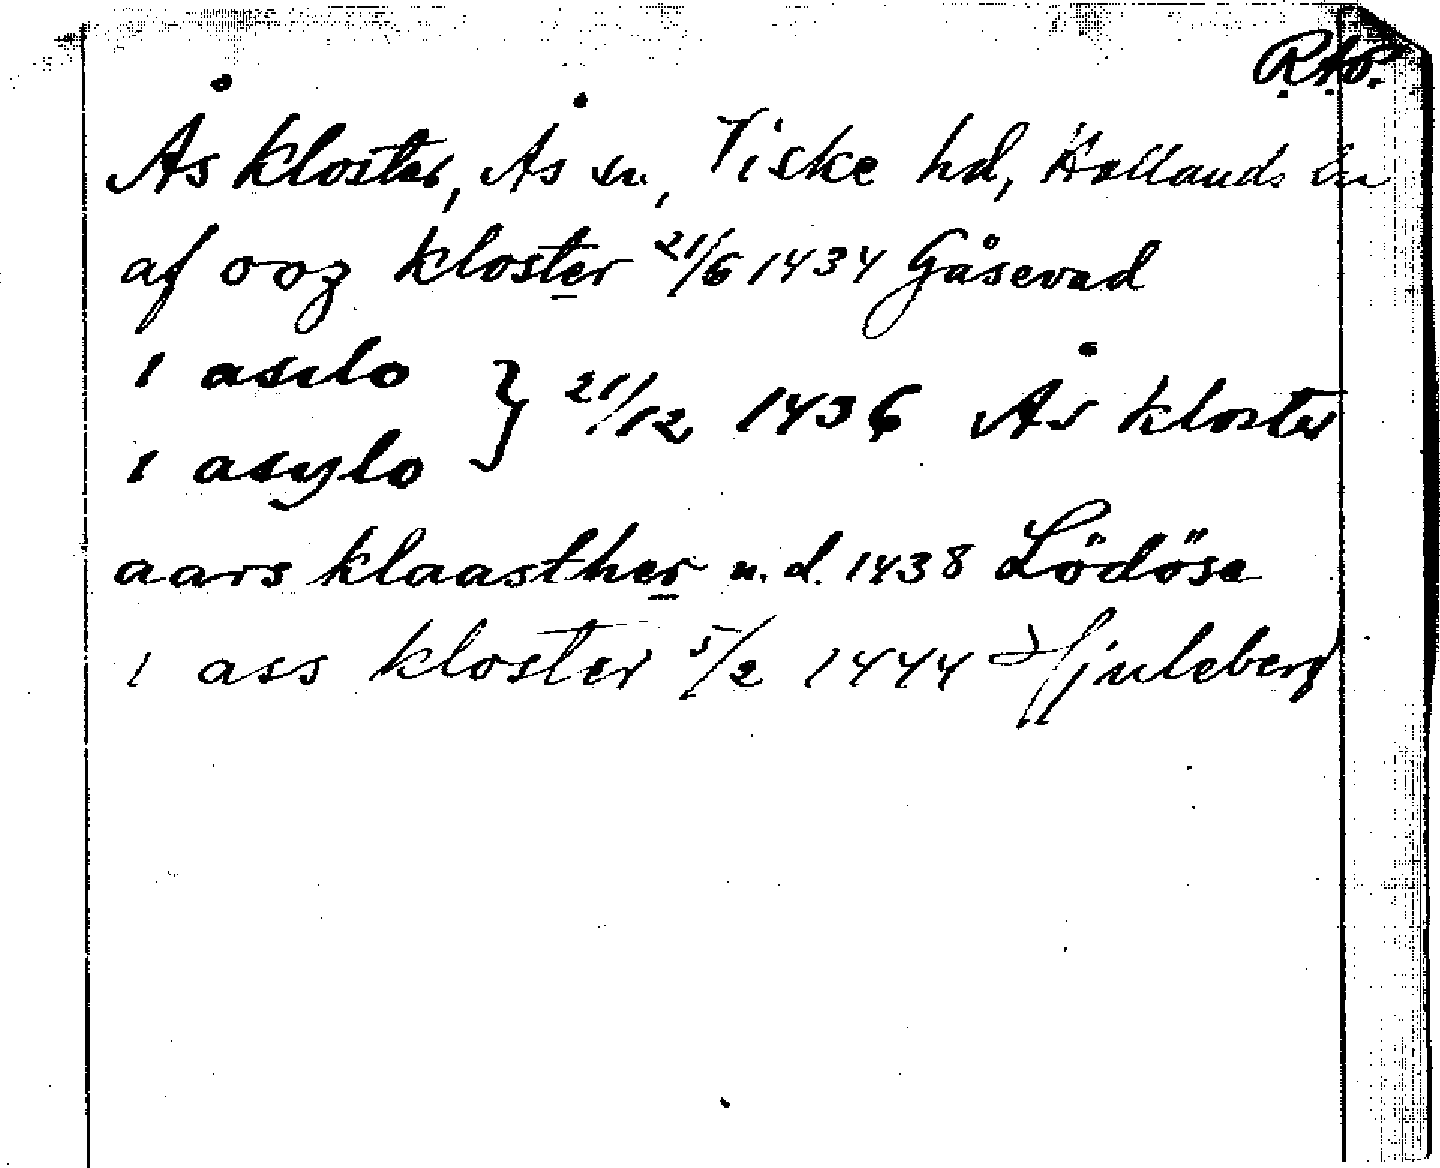 R.A.P.
Ås kloster, Ås sn, Viske hd, Hallands län
af ooz kloster 21/6 1434 Gåsevad
i asilo } 21/12 1436 Ås kloster
i asylo
aars klaasther u.d. 1438 Lödöse
i ass kloster 5/2 1444 Hjuleberg